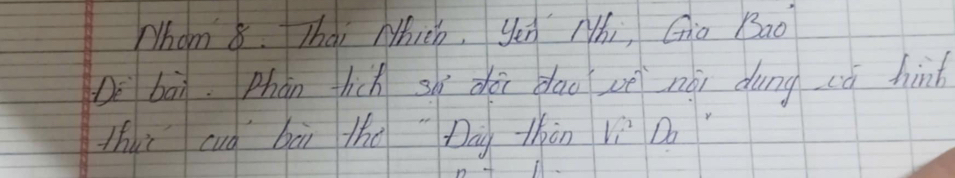 Nhóm 8. Thái Nhiên, Yến Nhi, Gia Bảo
Đề bài. Phân tích sự độc đáo về nội dung và hình
thức của bài thơ "Đây thôn Vĩ Dạ"